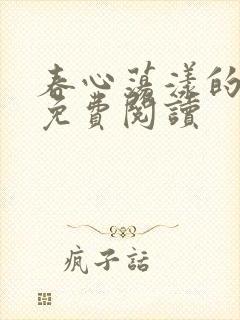 春心蕩漾的
免費閱讀
瘋子話